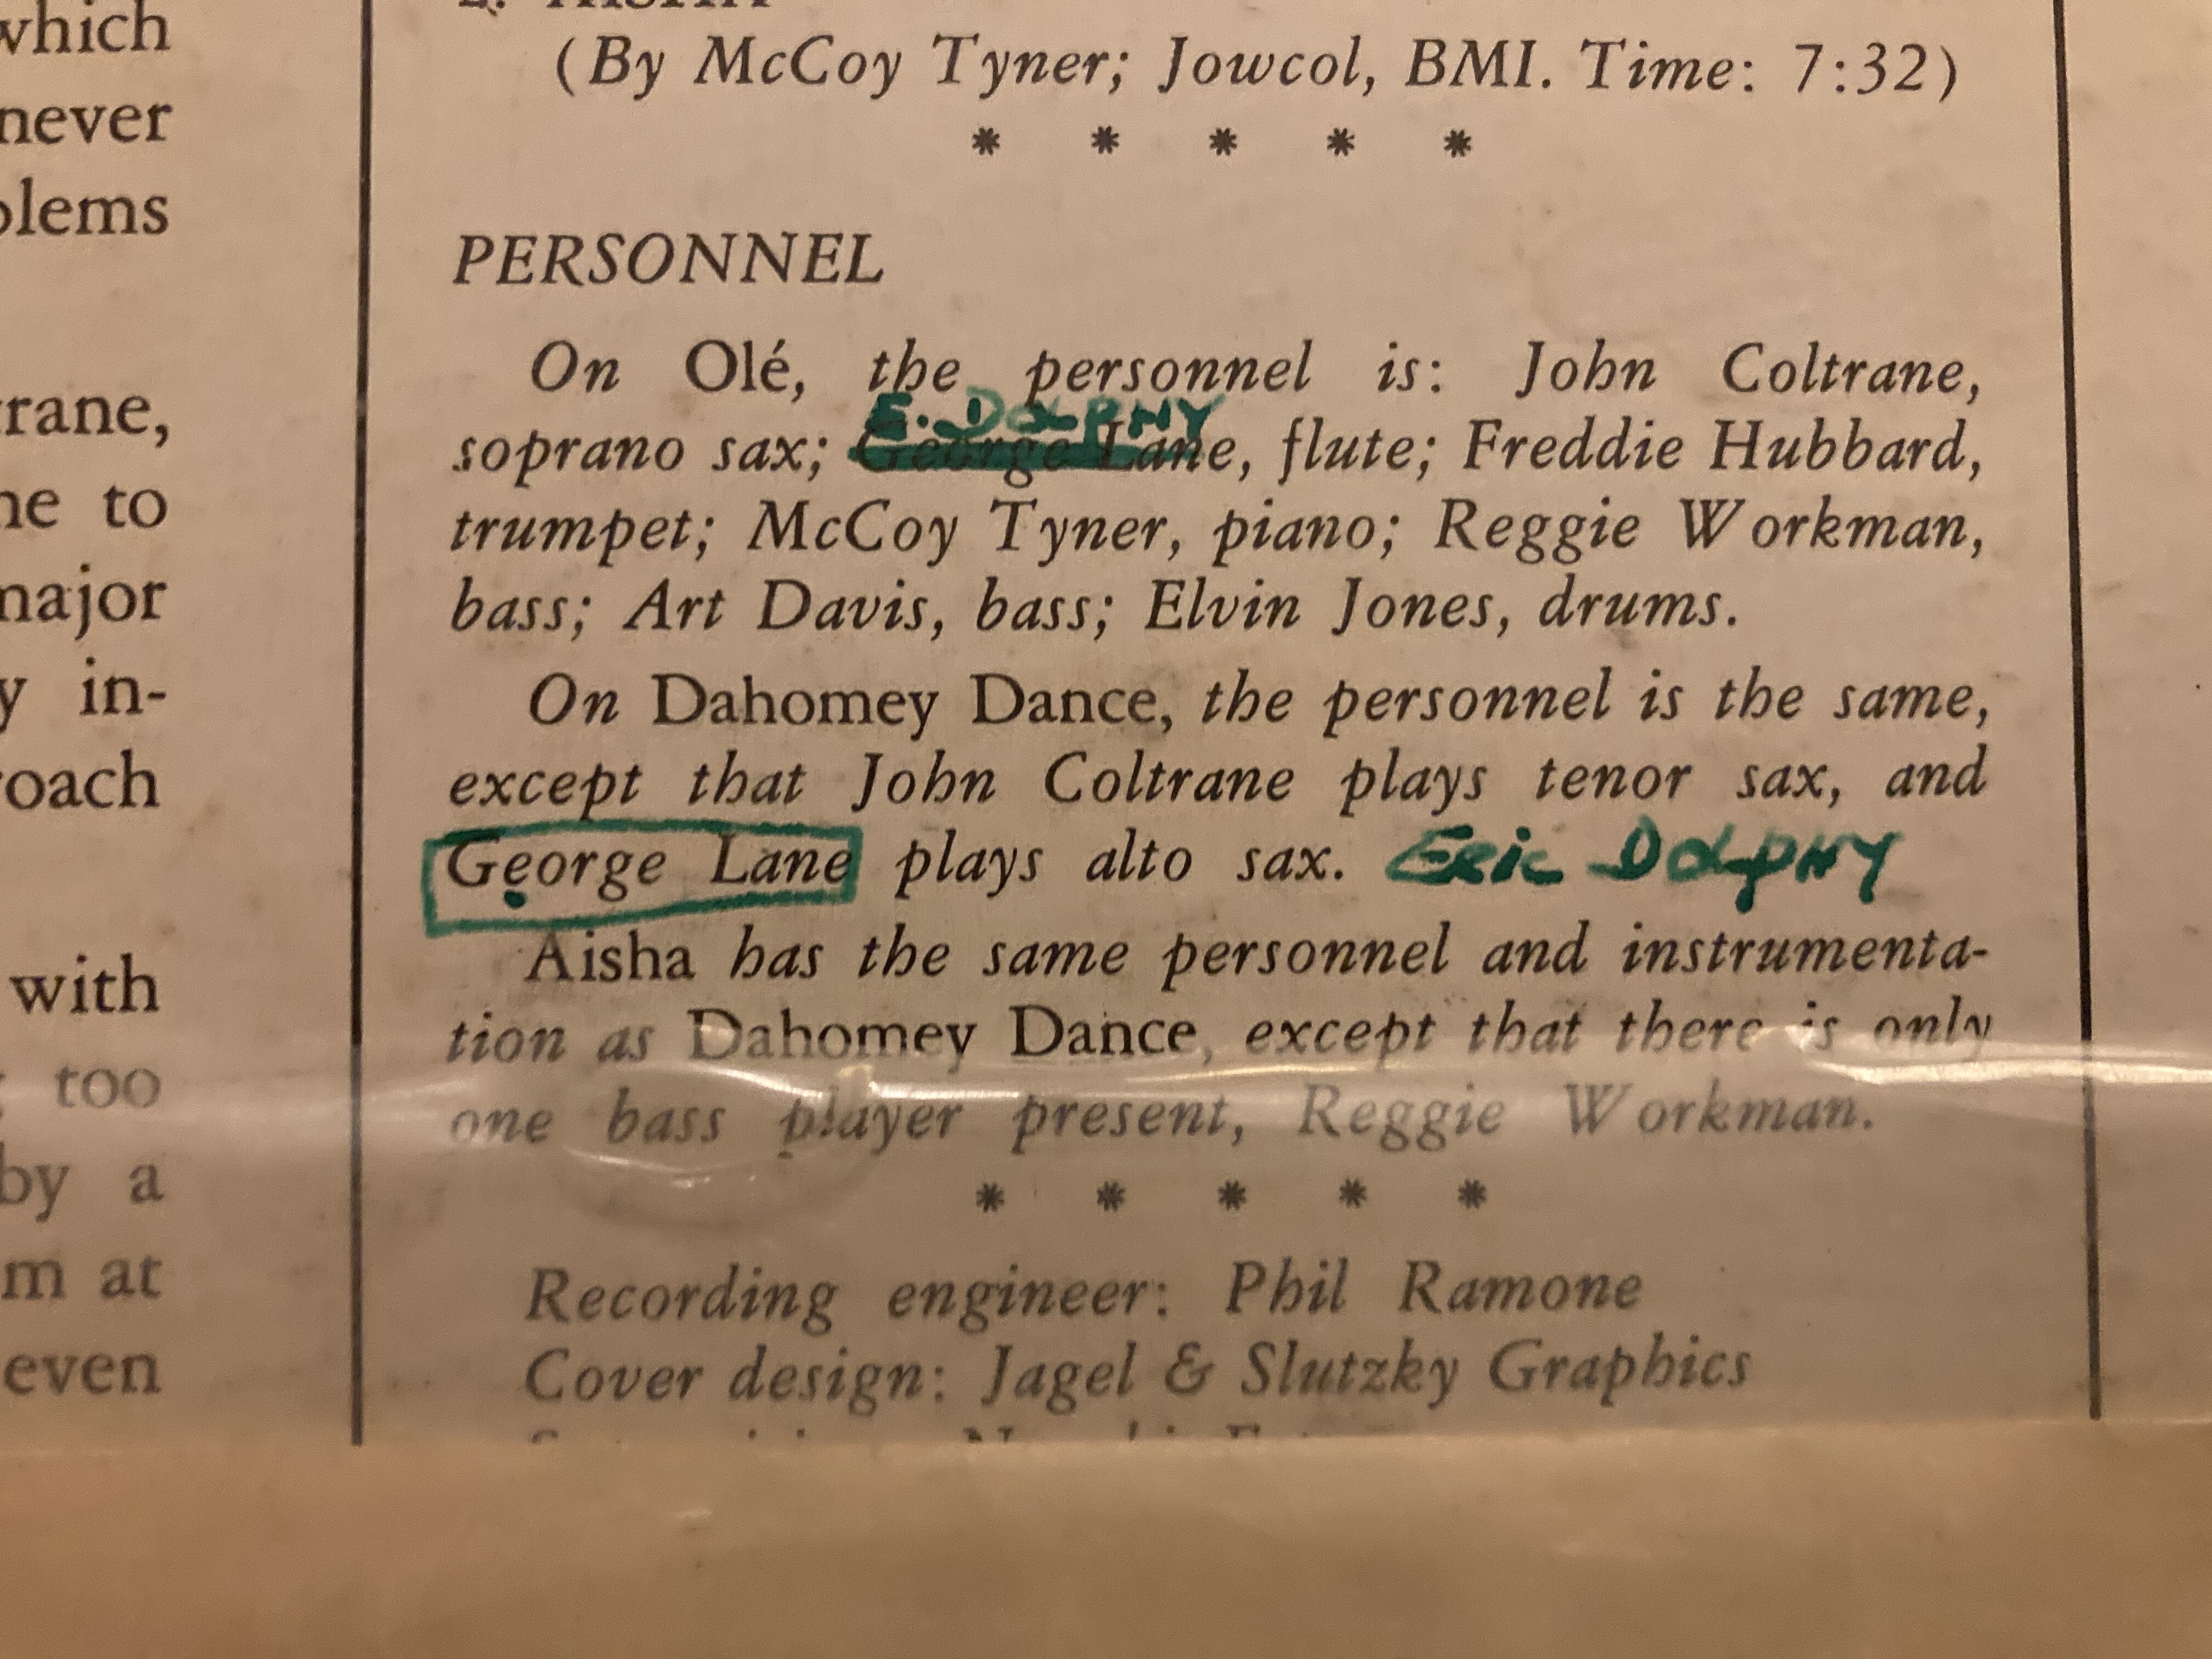 which
never
trane,
to
major
in-
with
too
by a
at
even
(By McCoy Tyner; Jowcol, BMI. Time: 7:32)
* * * * *
PERSONNEL
On Olé, the personnel is: John Coltrane,
E. DOLPHY
soprano sax; George Lane, flute; Freddie Hubbard,
trumpet; McCoy Tyner, piano; Reggie Workman,
bass; Art Davis, bass; Elvin Jones, drums.
On Dahomey Dance, the personnel is the same,
except that John Coltrane plays tenor sax, and
George Lane plays alto sax. Eric DOLPHY
Aisha has the same personnel and instrumenta-
tion as Dahomey Dance, except that there is only
one bass player present, Reggie Workman.
* * * * *
Recording engineer: Phil Ramone
Cover design: Jagel & Slutzky Graphics